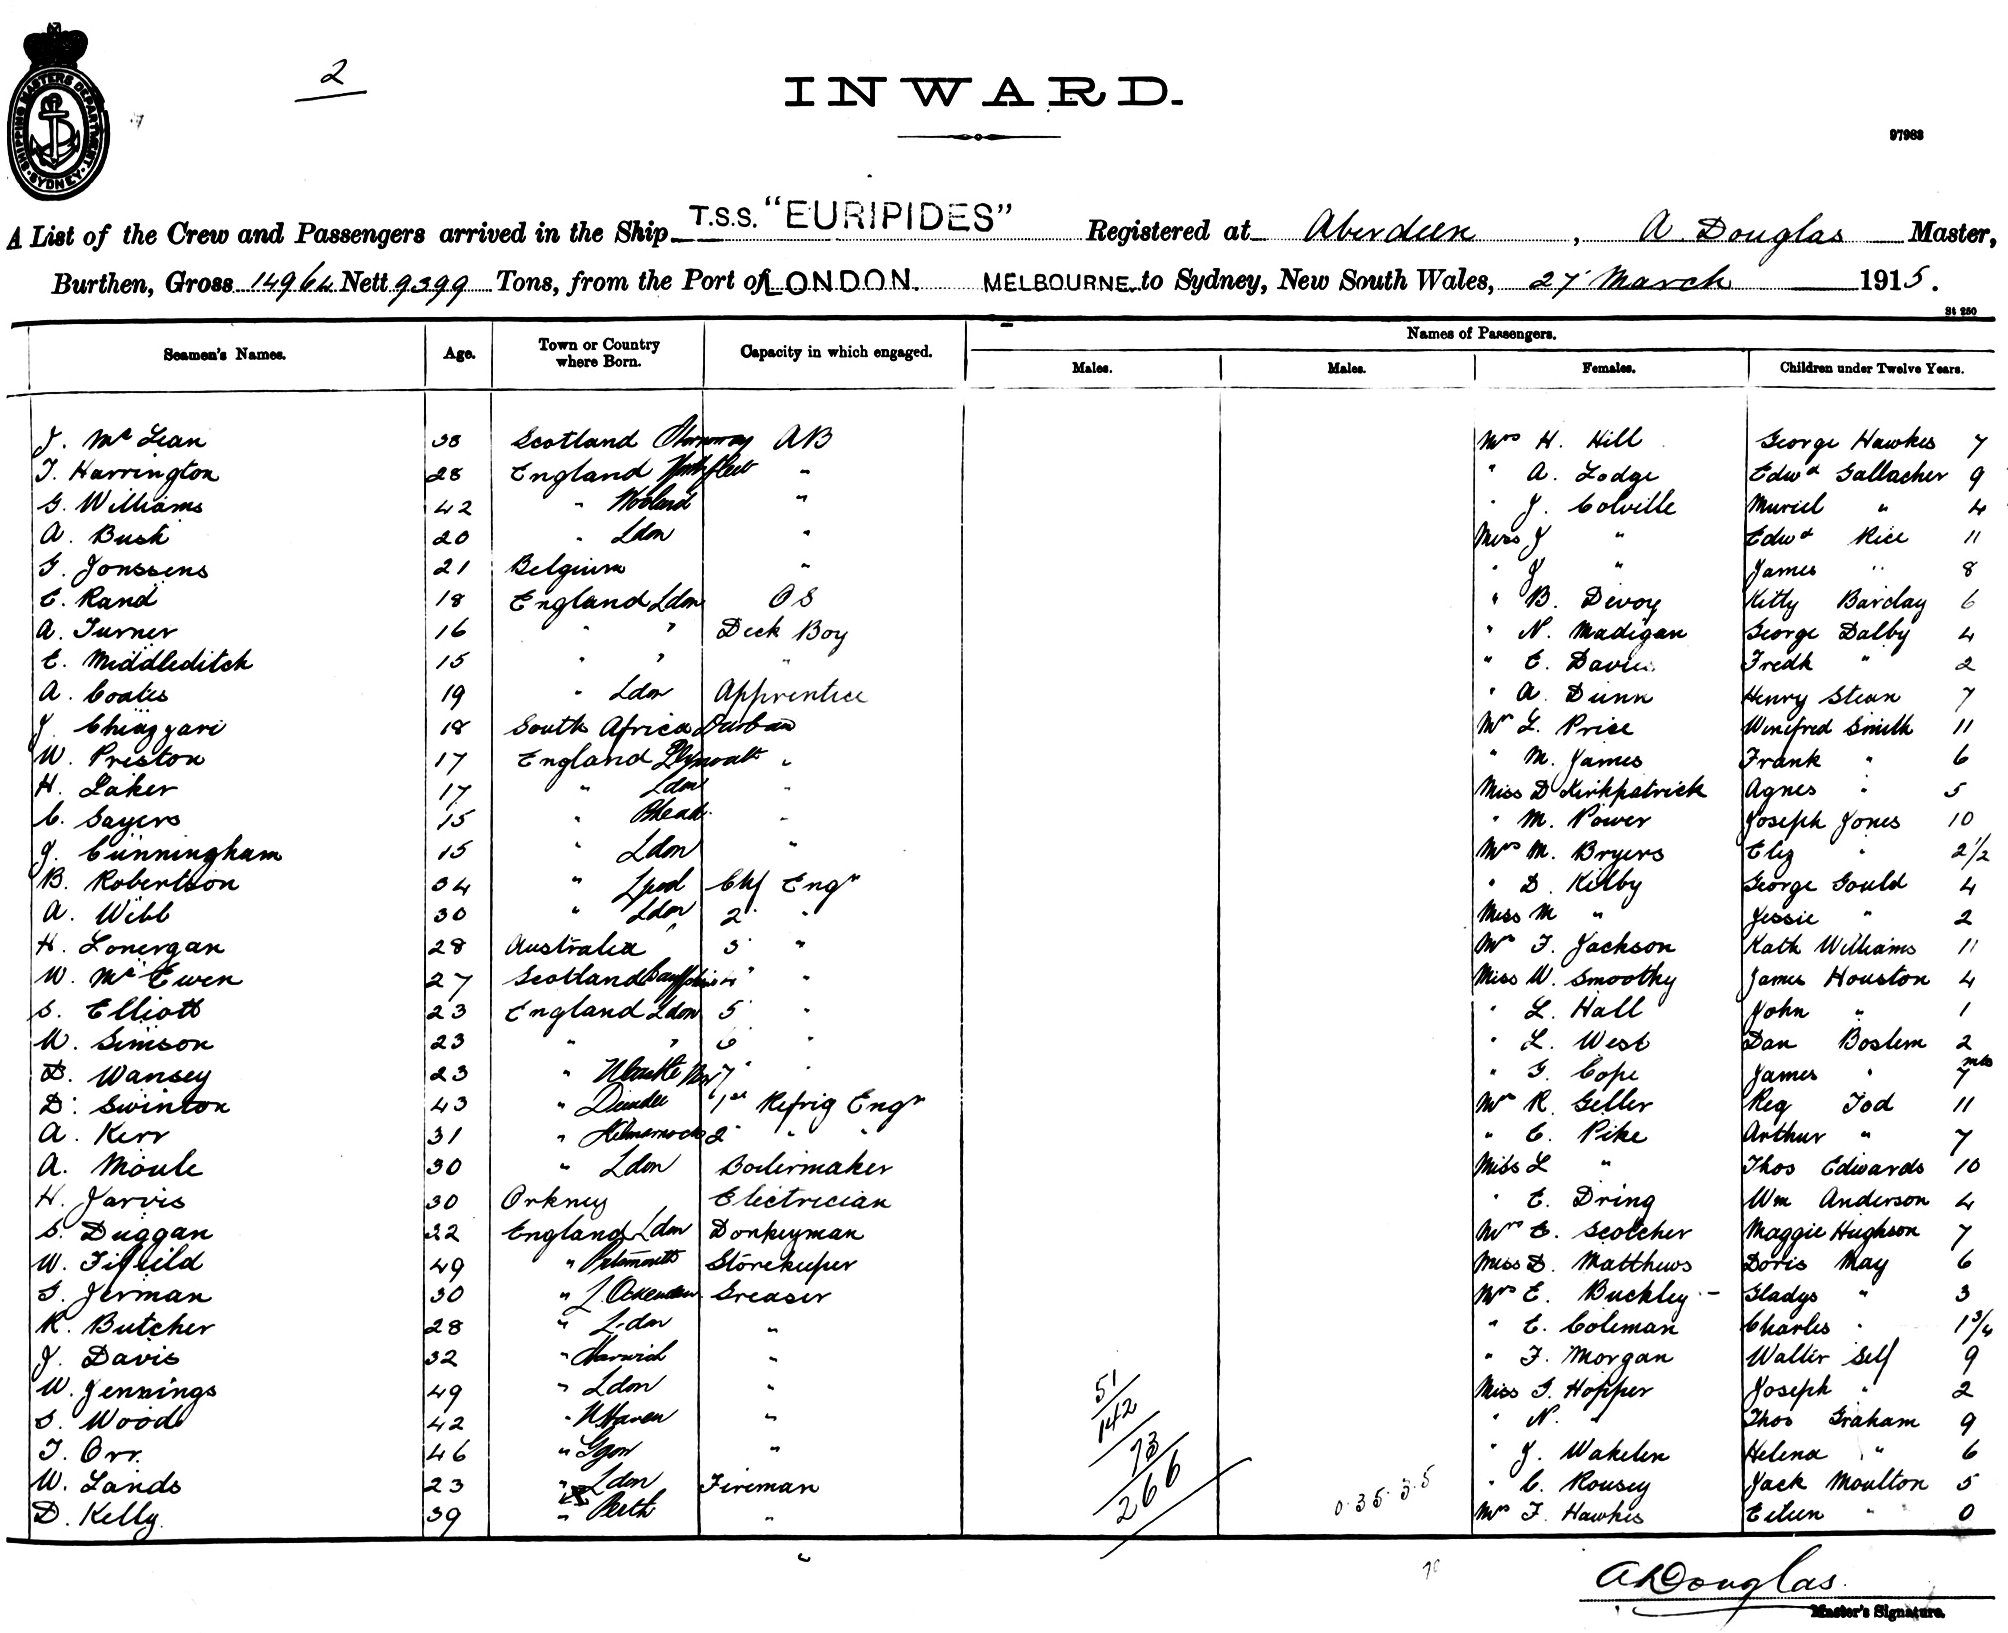 SHIPPING MASTERS DEPARTMENT
SYDNEY
2
INWARD.
97983
A List of the Crew and Passengers arrived in the Ship T.S.S. "EURIPIDES" Registered at Aberdeen, A Douglas Master,
Burthen, Gross 14964 Nett 9399 Tons, from the Port of LONDON. MELBOURNE to Sydney, New South Wales, 27 March 1915.
St 250
Names of Passengers.
Seamen's Names. Age. Town or Country where Born. Capacity in which engaged. Males. Males. Females. Children under Twelve Years.
J. Mc Lean 38 Scotland AB Mrs H. Hill George Hawkes 7
T. Harrington 28 England Northfleet " " A. Lodge Edwd Gallacher 9
G. Williams 42 " " " J. Colville Muriel " 4
A. Bush 20 " Ldon " Miss J " Edwd Rice 11
G. Jonssens 21 Belgium " " J " James " 8
E. Rand 18 England Ldon OS " B. Devoy Kitty Barclay 6
A. Turner 16 " " Deck Boy " N. Madigan George Dalby 4
E. Middleditch 15 " " " " E. Davies Fredk " 2
A. Coates 19 " Ldon Apprentice " A. Dunn Henry Stean 7
J Chiazzari 18 South Africa Durban Mrs L. Price Winifred Smith 11
W. Preston 17 England Plymouth " " M. James Frank " 6
H. Laker 17 " Ldon " Miss D Kirkpatrick Agnes " 5
C. Sayers 15 " Bhead " " M. Power Joseph Jones 10
J. Cunningham 15 " Ldon " Mrs M. Bryers Eliz " 2 1/2
B. Robertson 34 " Lpool Chf Engr " D. Kilby George Gould 4
A. Webb 30 " Ldon 2 " Miss M " Jessie " 2
H. Lonergan 28 Australia 3 " Mrs F. Jackson Kath Williams 11
W. Mc Ewen 27 Scotland Banffshire 4 " Miss W. Smoothy James Houston 4
S. Elliott 23 England Ldon 5 " " L. Hall John " 1
W. Simson 23 " " 6 " " L. West Dan Boslem 2
D. Wansey 23 " 7 " " G. Cope James " 7 mts
D. Swinton 43 " Dundee 1st Refrig Engr Mrs R. Geller Reg Tod 11
A. Kerr 31 " Kilmarnock 2 " " " E. Pike Arthur " 7
A. Moule 30 " Ldon Boilermaker Miss L " Thos Edwards 10
H. Jarvis 30 Orkney Electrician " E. Dring Wm Anderson 4
S. Duggan 32 England Ldon Donkeyman Mrs E. Scotcher Maggie Hughson 7
W. Fifield 49 " Portsmouth Storekeeper Miss D. Matthews Doris May 6
G. Jerman 30 " Greaser Mrs E. Buckley - Gladys " 3
R. Butcher 28 " Ldon " " E. Coleman Charles " 1 3/4
J. Davis 32 " Harwich " " F. Morgan Walter Self 9
W. Jennings 49 " Ldon " 51 Miss G. Hopper Joseph " 2
G. Wood 42 " NHaven " 142 " N. " Thos Graham 9
T. Orr. 46 " " 73 " J. Wakelen Helena " 6
W. Lands 23 " Ldon Fireman 266 0.35.3.5 " C. Rousey Jack Moulton 5
D. Kelly. 39 " Perth " Mrs F. Hawkes Eileen " 0
A Douglas.
Master's Signature.